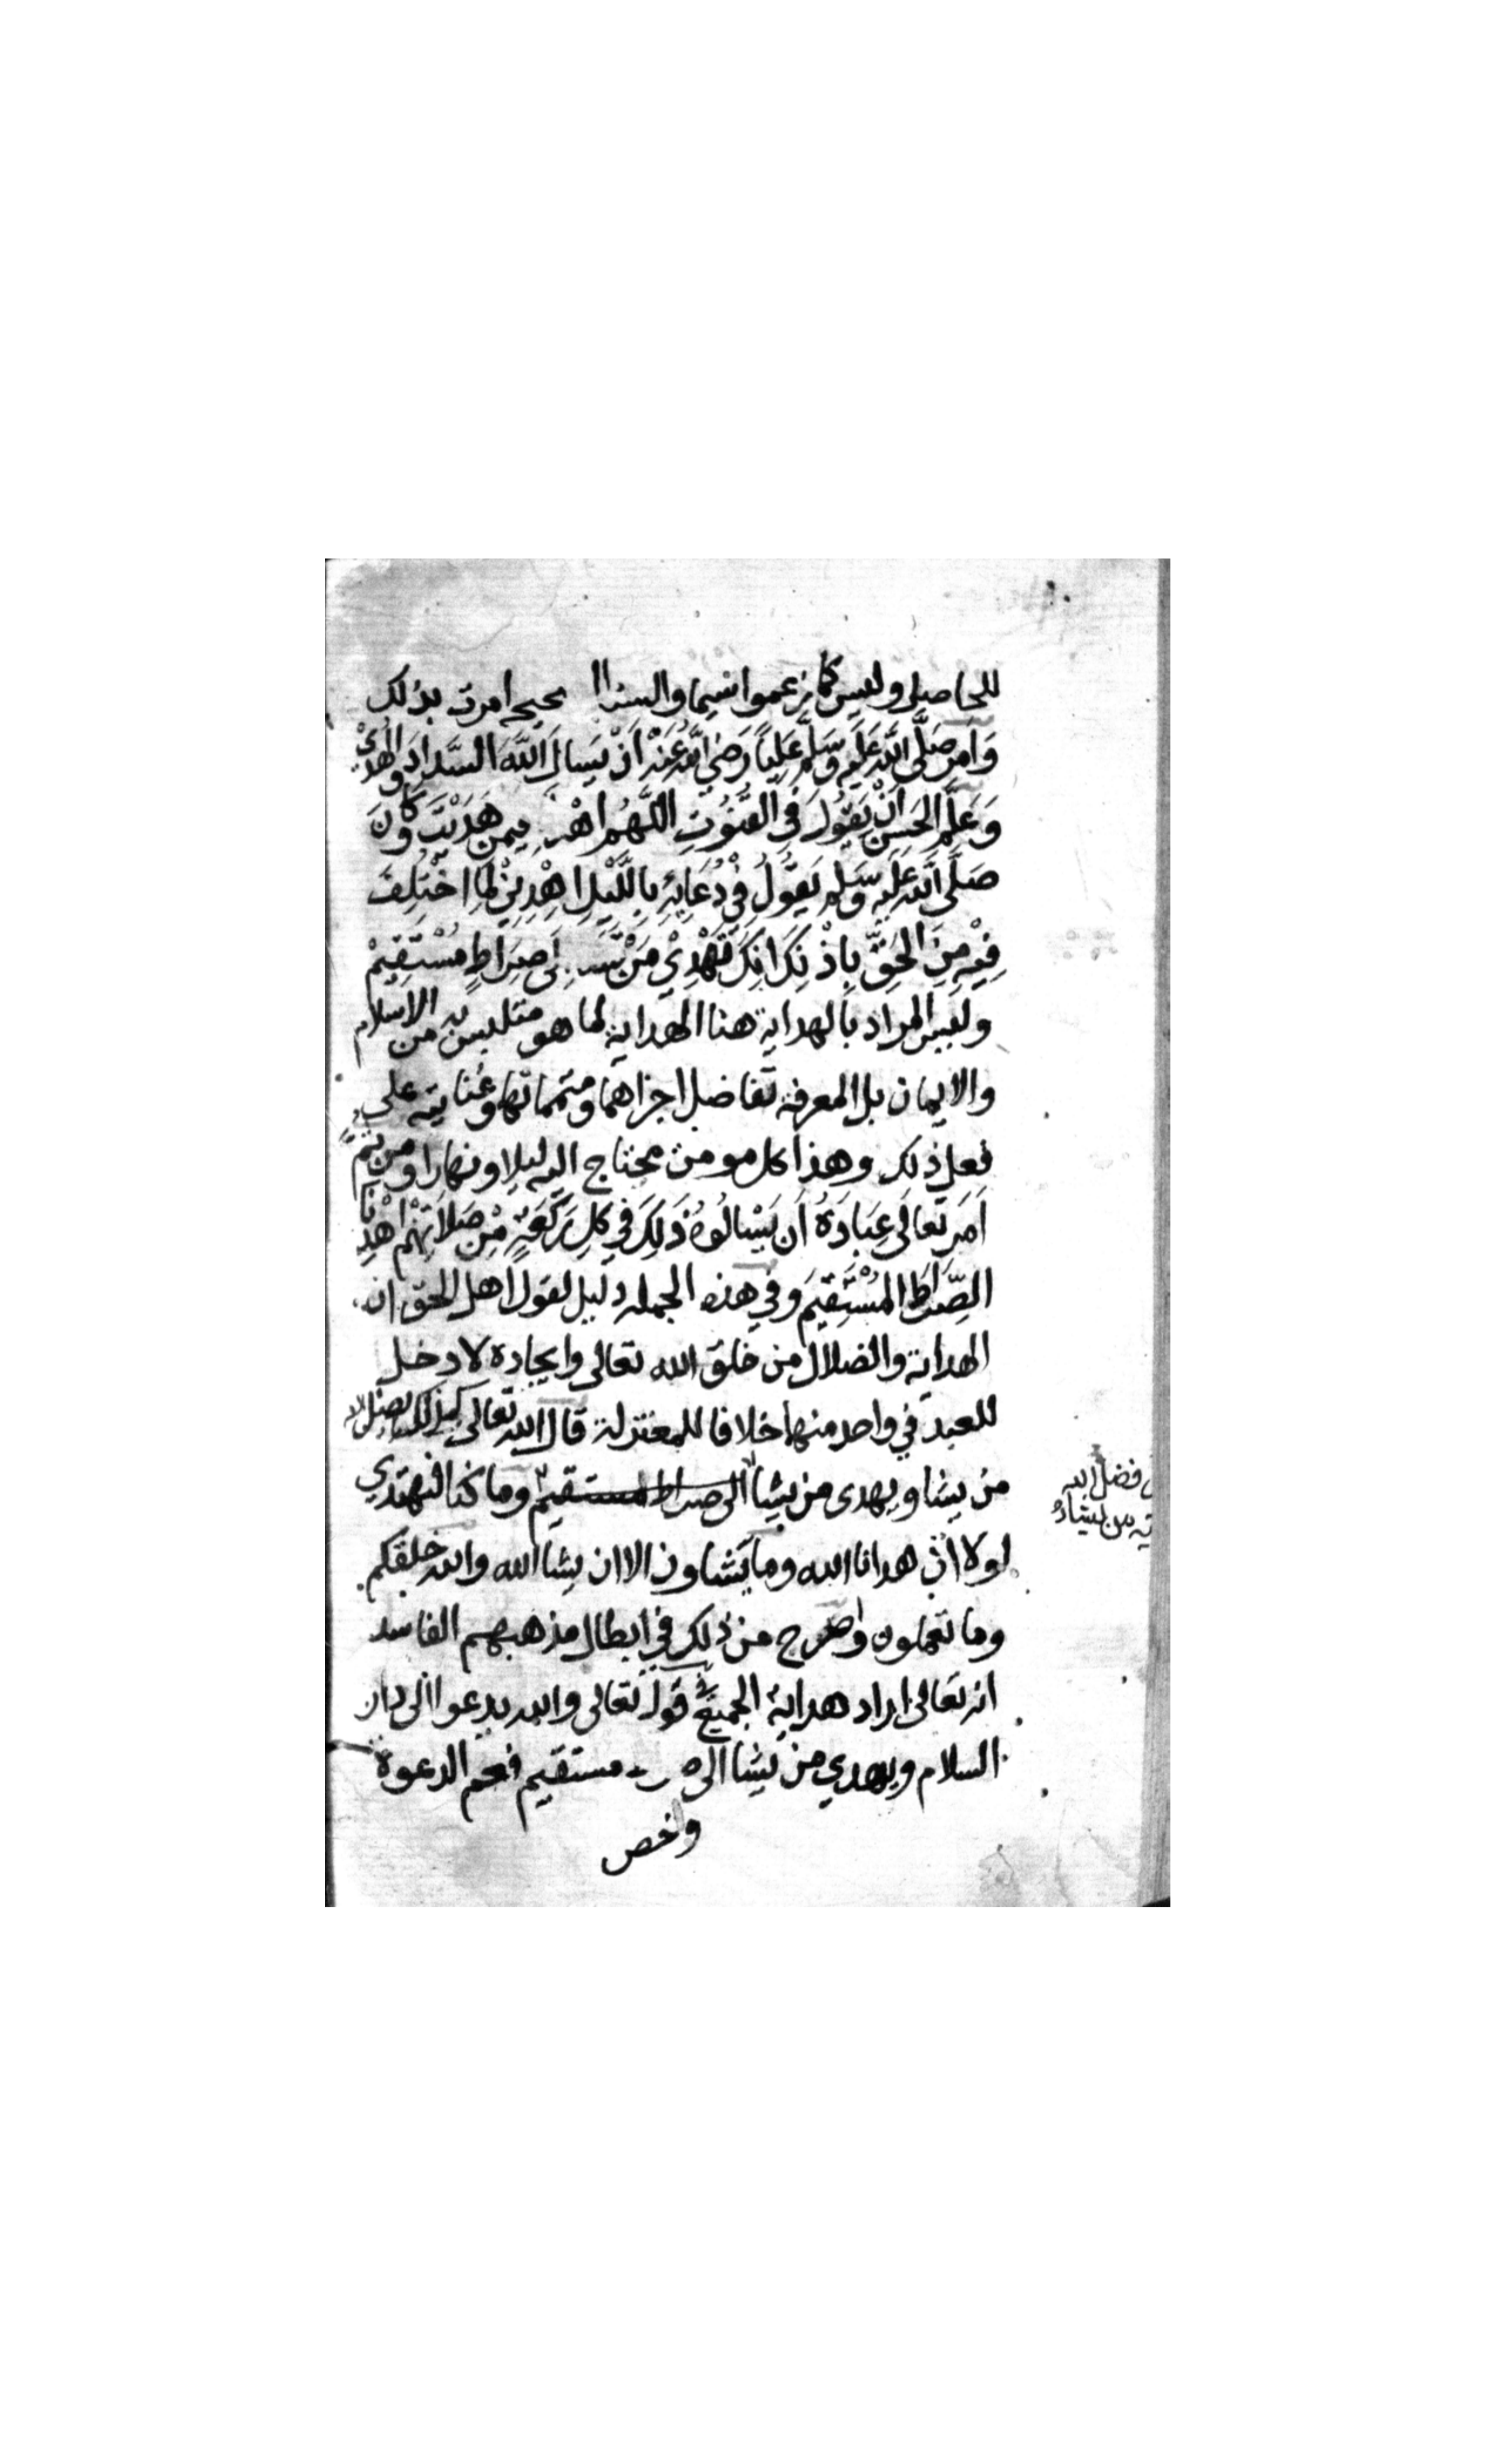 للحاصل وليس كما زعموا سيما والسنة صحيحة امرت بذلك
وَاَمر صَلَّى اللَّه عَلَيْهِ وَسَلَّم عَلِيّاً رَضِيَ اللَّه عَنْهُ اَنْ يَسالَ اللَّهَ السَّدادَ والهُدَىْ
وَعَلَّمَ الحَسن اَنْ يَقُولَ فِى القُنُوتِ اللَّهُم اهْدِ فيمن هَدَيْتَ وكَانَ
صَلَّى اللَّه عَلَيْهِ وَسَلم يَقُولُ فِىْ دُعَايِهِ بِاللَّيْلِ اِهْدِنِىْ لِمَا اخْتُلِفَ
فِيْهِ مِنَ الحَقِّ بِاِذْنِكَ اِنكَ تَهْدِىْ مَنْ تَشَـ اِلَى صِرَاطٍ مُسْتَقِيْمْ
وليس المراد بالهداية هنا الهداية لما هو متلبس به من الاسلام
والايمان بل المعرفة تفاضل اجزاهما ومتمماتها وعنايته على
فعل ذلك وهذا كل مومن محتاج اليه ليلا ونهارا ومن ثمَّ
اَمَرَ تَعالَى عِبَادَهُ اَن يَسْالُوهُ ذَلِكَ فِي كلِ رَكْعَةٍ مِنْ صَلاَتِهْم اهْدِنَا
الصِّرَاطَ المُسْتَقِيمَ وفي هذه الجمله دليل لقول اهل الحق ان
الهداية والضلال من خلق الله تعالى وايجاده لا دخل
للعبد في واحد منها خلافا للمعتزلة قال الله تعالى كذلك يضل الله
من يشا ويهدى من يشا الى صراط مستقيم وما كنا لنهتدي
لولا أن هدانا الله وما تشاون الا ان يشا الله والله خلقكم
وما تعملون واصرح من ذلك في ابطال مذهبهم الفاسد
انه تعالى اراد هداية الجميع قوله تعالى والله يدعوا الى دار
السلام ويهدي من يشا الى مستقيم فعم الدعوة
وخص
فضل الله
من يشاءُ